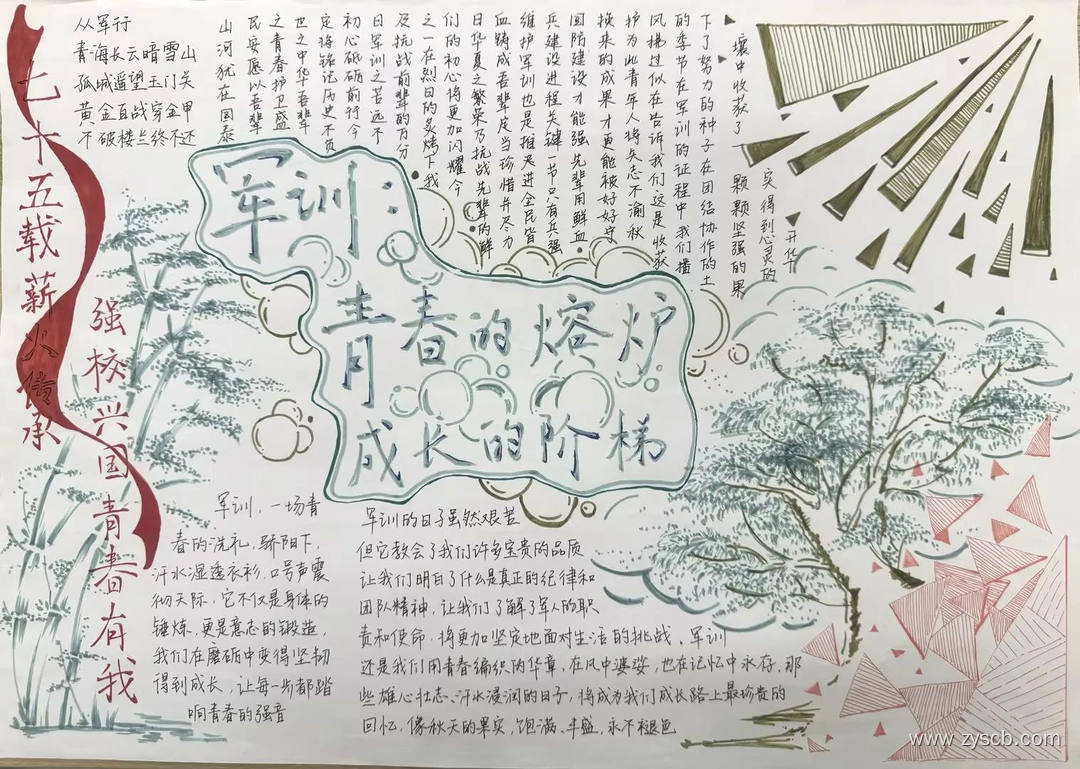 七十五载薪火传承
强校兴国青春有我
从军行
青海长云暗雪山
孤城遥望玉门关
黄金百战穿金甲
不破楼兰终不还
山河犹在国泰
民安愿以吾辈
之青春护卫盛
世之中华吾辈
定将铭记历史不负
初心砥砺前行今
日军训之苦远不
及抗战前辈的万分
之一在烈日的炙烤下我
们的初心将更加闪耀今
日华夏之繁荣乃抗战先辈的鲜
血铸成吾辈应当珍惜并尽力
维护军训也是推进全民皆
兵建设进程关键一节只有兵强
国防建设才能强先辈用鲜血
换来的成果才更能被好好守
护为此青年人将矢志不渝秋
风拂过似在告诉我们这是收获
的季节在军训的征程中我们播
下了努力的种子在团结协作的土
壤中收获了一颗颗坚强的果
实得到心灵的
升华
军训:
青春的熔炉
成长的阶梯
军训，一场青
春的洗礼，骄阳下
汗水湿透衣衫，口号声震
彻天际，它不仅是身体的
锤炼，更是意志的锻造，
我们在磨砺中变得坚韧
得到成长，让每一步都踏
响青春的强音
军训的日子虽然艰苦
但它教会了我们许多宝贵的品质
让我们明白了什么是真正的纪律和
团队精神，让我们了解了军人的职
责和使命，将更加坚定地面对生活的挑战。军训
还是我们用青春编织的华章，在风中婆娑，也在记忆中永存，那
些雄心壮志、汗水浸润的日子，将成为我们成长路上最珍贵的
回忆，像秋天的果实，饱满、丰盛，永不褪色
www.zyscb.com